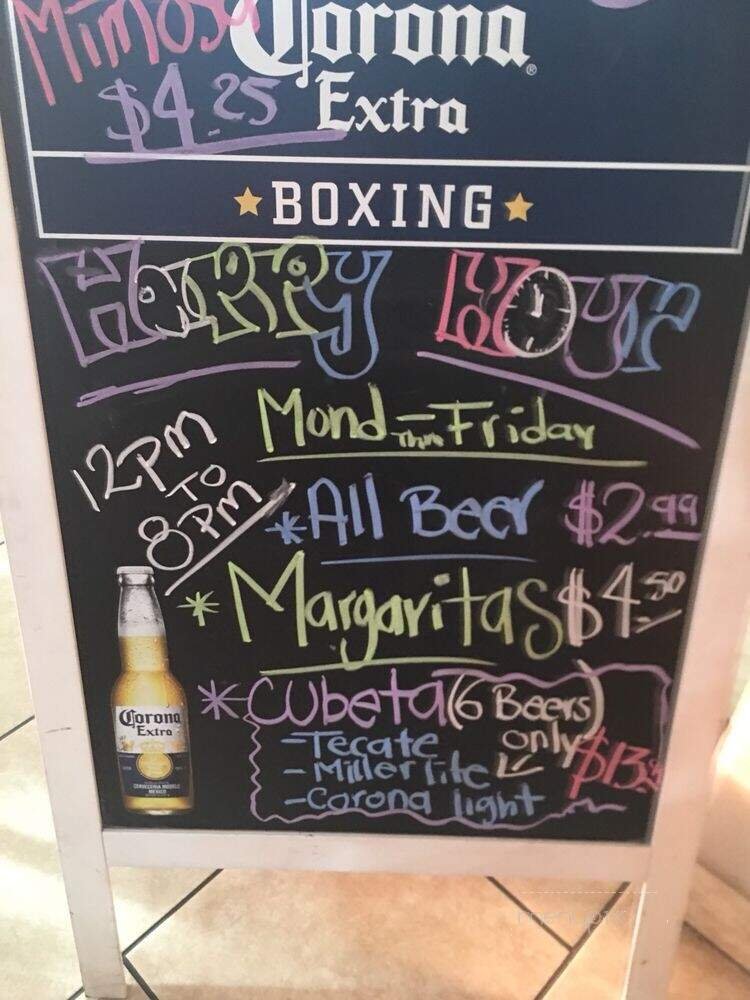 Mimosa
$4.25
Corona
Extra
BOXING
Happy Hour
Mond - thru Friday
12pm
TO
8pm
* All Beer $2.99
* Margaritas $4.50
* Cubeta (6 Beers)
only
- Tecate
- Miller lite
- Corona light
Corona
Extra
CERVECERIA MODELO
MEXICO